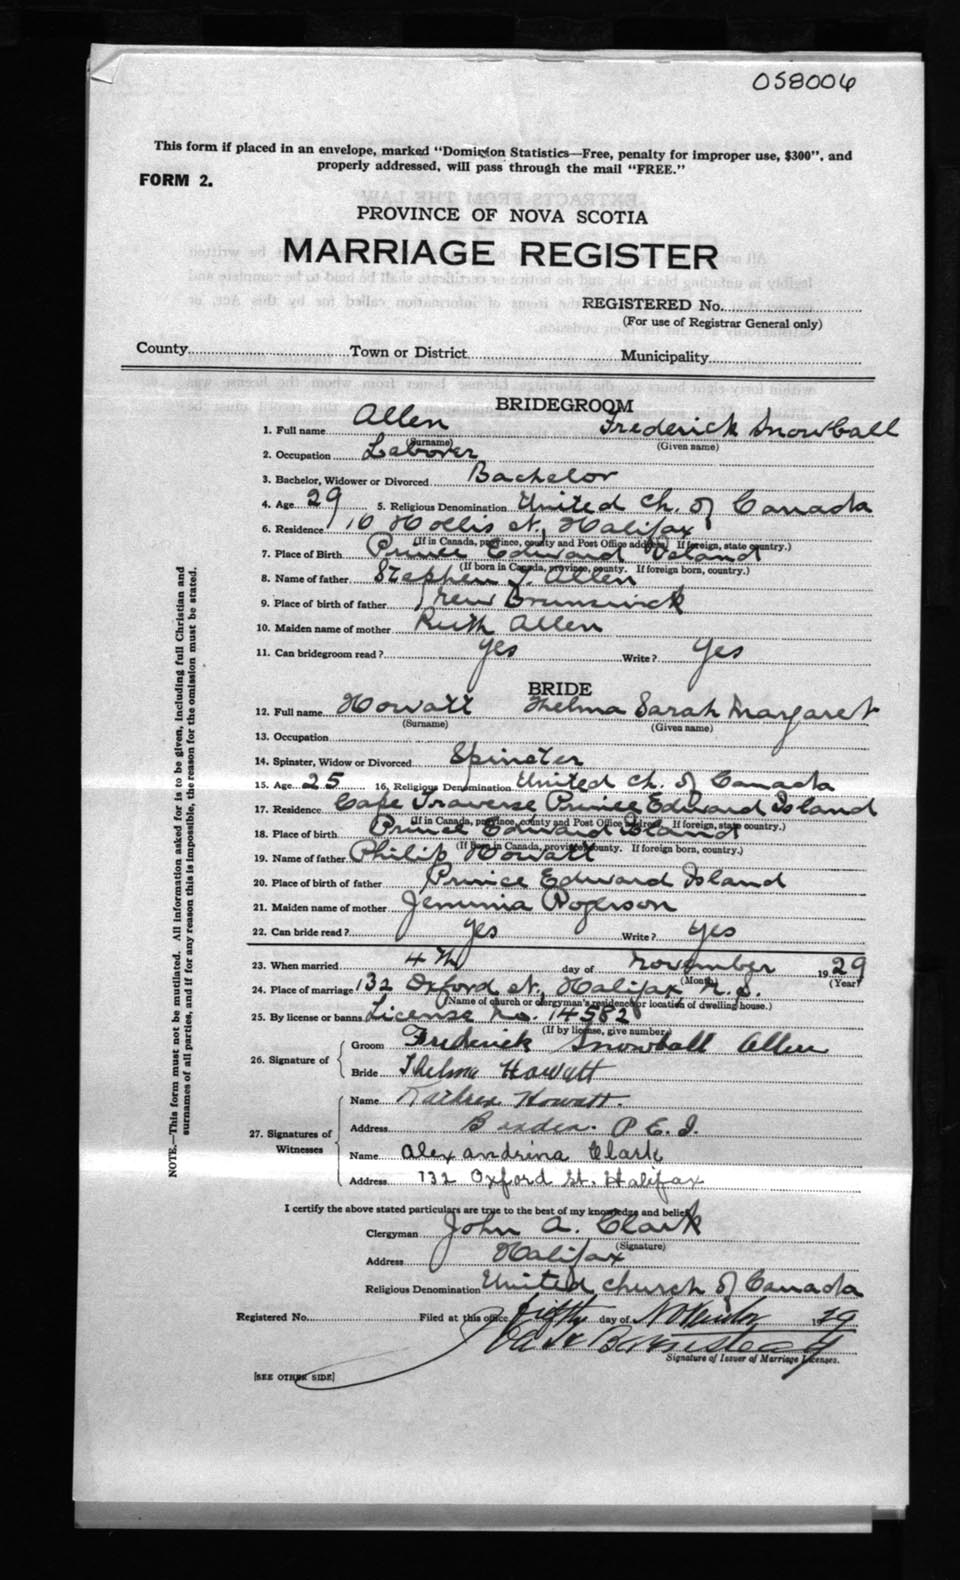 058006
This form if placed in an envelope, marked "Dominion Statistics—Free, penalty for improper use, $300", and
properly addressed, will pass through the mail "FREE."
FORM 2.
PROVINCE OF NOVA SCOTIA
MARRIAGE REGISTER
REGISTERED No.
(For use of Registrar General only)
County Town or District Municipality
BRIDEGROOM
1. Full name Allen Frederick Snowball
(Surname) (Given name)
2. Occupation Laborer
3. Bachelor, Widower or Divorced Bachelor
4. Age 29 5. Religious Denomination United Ch. of Canada
6. Residence 10 Hollis St., Halifax
(If in Canada, province, county and Post Office address. If foreign, state country.)
7. Place of Birth Prince Edward Island
(If born in Canada, province, county. If foreign born, country.)
8. Name of father Stephen J. Allen
9. Place of birth of father New Brunswick
10. Maiden name of mother Ruth Allen
11. Can bridegroom read? yes Write? yes
BRIDE
12. Full name Howatt Thelma Sarah Margaret
(Surname) (Given name)
13. Occupation
14. Spinster, Widow or Divorced Spinster
15. Age 25 16, Religious Denomination United Ch. of Canada
17. Residence Cape Traverse Prince Edward Island
(If in Canada, province, county and Post Office address. If foreign, state country.)
18. Place of birth Prince Edward Island
(If born in Canada, province, county. If foreign born, country.)
19. Name of father Philip Howatt
20. Place of birth of father Prince Edward Island
21. Maiden name of mother Jemima Rogerson
22. Can bride read? yes Write? yes
23. When married 4th day of November 1929
(Month) (Year)
24. Place of marriage 132 Oxford St., Halifax, N.S.
(Name of church or clergyman's residence or location of dwelling house.)
25. By license or banns License No. 14582
(If by license, give number)
26. Signature of Groom Frederick Snowball Allen
Bride Thelma Howatt
27. Signatures of Witnesses Name Howatt.
Address Borden. P.E.I.
Name Alexandrina Clark
Address 132 Oxford St. Halifax
I certify the above stated particulars are true to the best of my knowledge and belief.
Clergyman John A. Clark
(Signature)
Address Halifax
Religious Denomination United Church of Canada
Registered No. Filed at this office fifth day of November 1929
Signature of Issuer of Marriage Licenses.
[SEE OTHER SIDE]
NOTE.—This form must not be mutilated. All information asked for is to be given, including full Christian and
surnames of all parties, and if for any reason this is impossible, the reason for the omission must be stated.